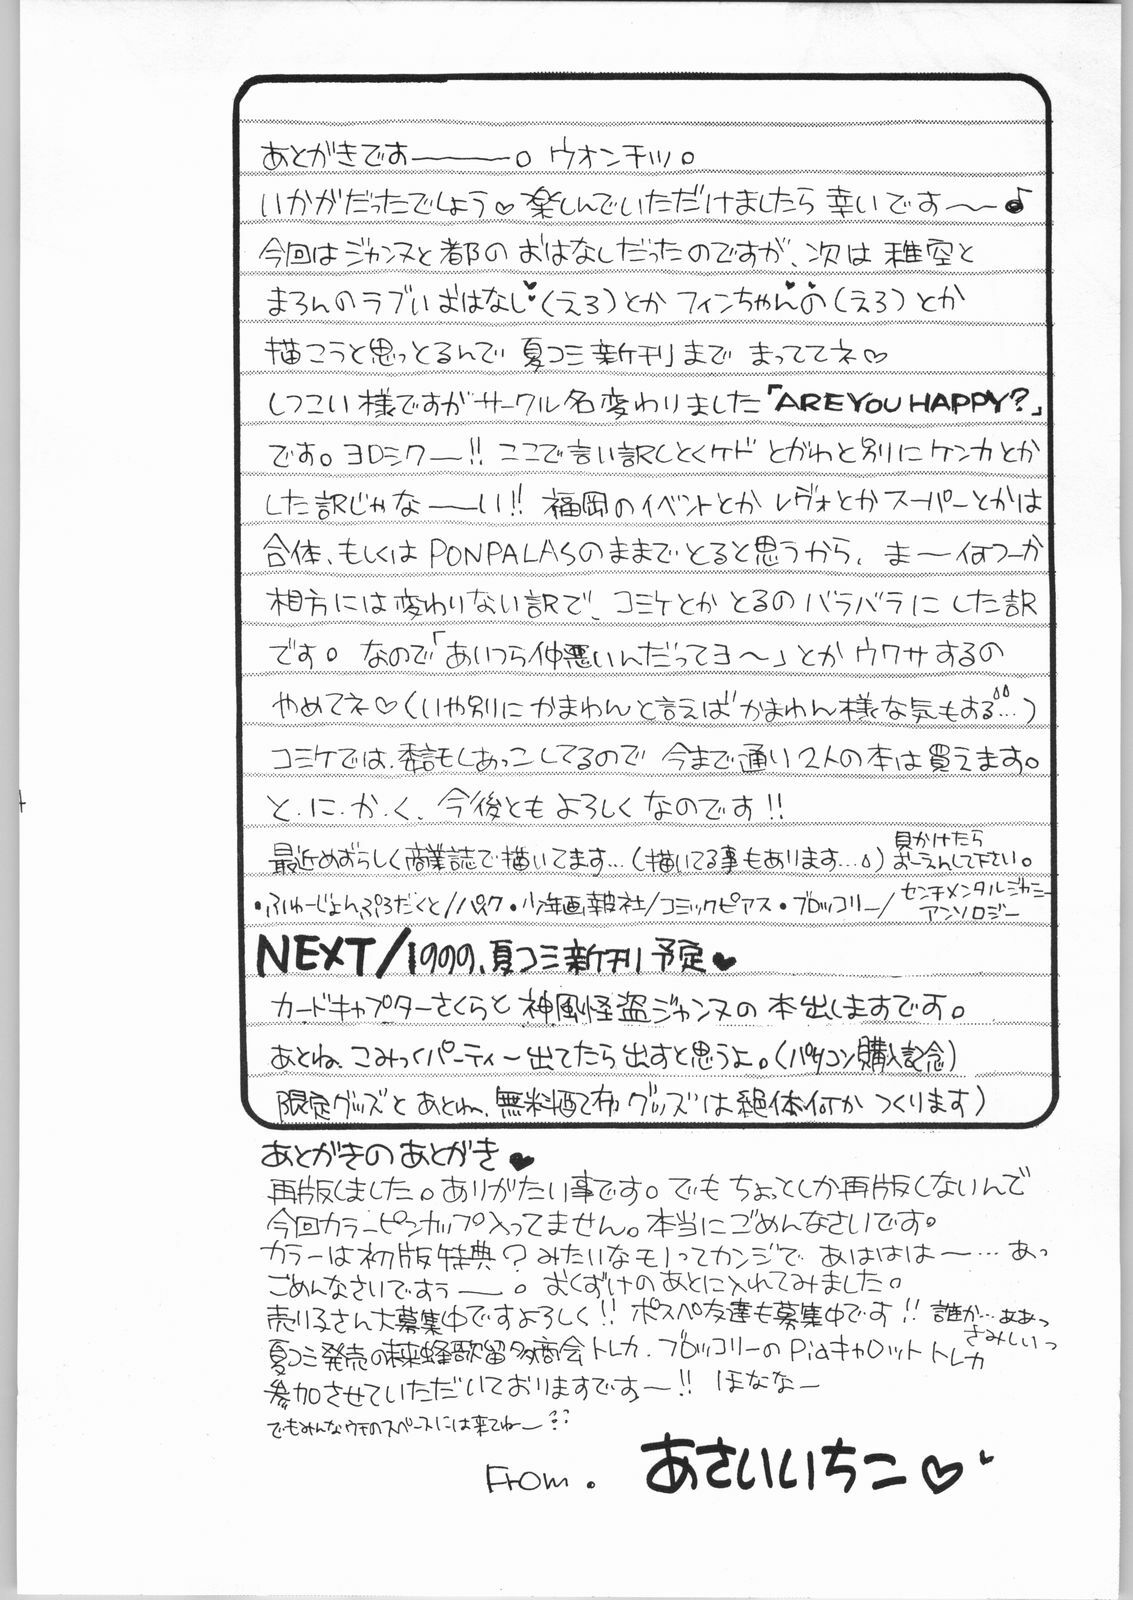 あとがきです———。ウオンチッ。
いかがだったでしょう♡楽しんでいただけましたら幸いです～♪
今回はジャンヌと都のおはなしだったのですが、次は稚空と
まろんのラブいおはなし(えろ)とかフィンちゃんの(えろ)とか
描こうと思っとるんで夏コミ新刊までまっててネ♡
しつこい様ですがサークル名変わりました「ARE YOU HAPPY?」
です。ヨロシクー!!ここで言い訳しとくケドとがわと別にケンカとか
した訳じゃな——い!!福岡のイベントとかレヴォとかスーパーとかは
合体、もしくはPONPALASのままでとると思うから、ま〜何つーか
相方には変わりない訳で、コミケとかとるのバラバラにした訳
です。なので「あいつら仲悪いんだってヨ～」とかウワサするの
やめてネ♡(いや別にかまわんと言えばかまわん様な気もする…)
コミケでは、委託もしあっこしてるので今まで通り2人の本は買えます。
と.に.か.く、今後ともよろしくなのです!!
最近めずらしく商業誌で描いてます…(描いてる事もあります…)見かけたらおしえんして下さい。
・ふゅーじょんぷろだくと/パスク・少年画報社/コミックピアス・ブロッコリー/センチメンタルジャニーアンソロジー
NEXT/1999、夏コミ新刊予定♥
カードキャプターさくらと神風怪盗ジャンヌの本出しますです。
あとね、こみっくパーティ〜出てたら出すと思うよ。(パソコン購入記念)
限定グッズとあとね、無料配布グッズは絶体何かつくります)
あとがきのあとがき♥
再版しました。ありがたい事です。でもちょっとしか再版しないんで
今回カラーピンカップ入ってません。本当にごめんなさいです。
カラーは初版特典?みたいなモノってカンジであははは〜…あっ
ごめんなさいですぅ——。おくずけのあとに入れてみました。
売り子さん大募集中ですよろしく!!ポスペ友達も募集中です!!誰か…ああっさみしいっ
夏コミ発売の未来蜂歌留多商会トレカ.ブロッコリーのPiaキャロットトレカ
参加させていただいておりますです—!!ほななー
でもみんなウチのスペースには来てねー
From. あさいいちこ♡